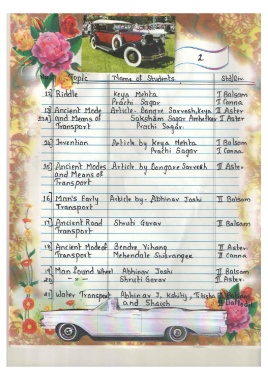 2
Topic Name of Students Std/Div
12) Riddle Keya Mehta II Balsam
Prachi Sagar I Canna
13) Ancient Mode Article- Dongre, Sarvesh, Keya II Aster
and Means of Saksham Sagar Ambetkar I Aster
Transport Prachi Sagar.
14) Invention Article by Keya Mehta II Balsam
Prathi Sagar I Canna
15) Ancient Modes Article by Dongare Sarvesh II Aster
and Means of
Transport
16) Man's Early Article by- Abhinav Joshi II Balsam
Transport
17) Ancient Road Shruti Gorav II Balsam
Transport
18) Ancient Mode of Bendre Vihang II Aster
Transport Mehendale Suvrangee II Canna
19) Man Sound Wheel Abhinav Joshi II Balsam
20) Shruti Gorav II Aster
21) Water Transport Abhinav J, Kshitij,
and